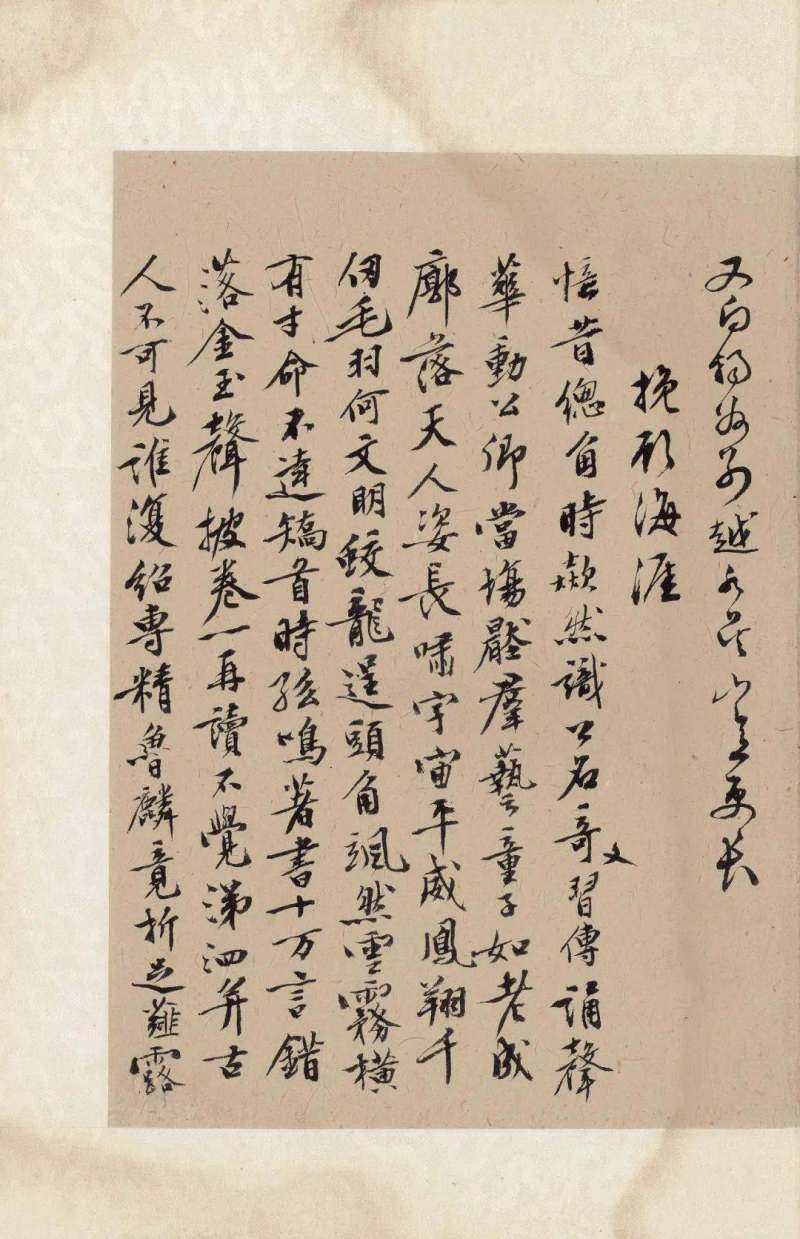 又向稽为别越水吴山意更长
挽顾海涯
悟昔总角時歘然識公名奇文習傳誦聲
華動公卿當場壓羣藝童子如老成
廓落天人姿長嘯宇宙平威鳳翔千
仞毛羽何文明蛟龍逞頭角颯然雲霧橫
有才命不達矯首時孤鳴著書十万言錯
落金玉聲披卷一再讀不覺涕泗并古
人不可見誰復紹專精魯麟竟折足薤露